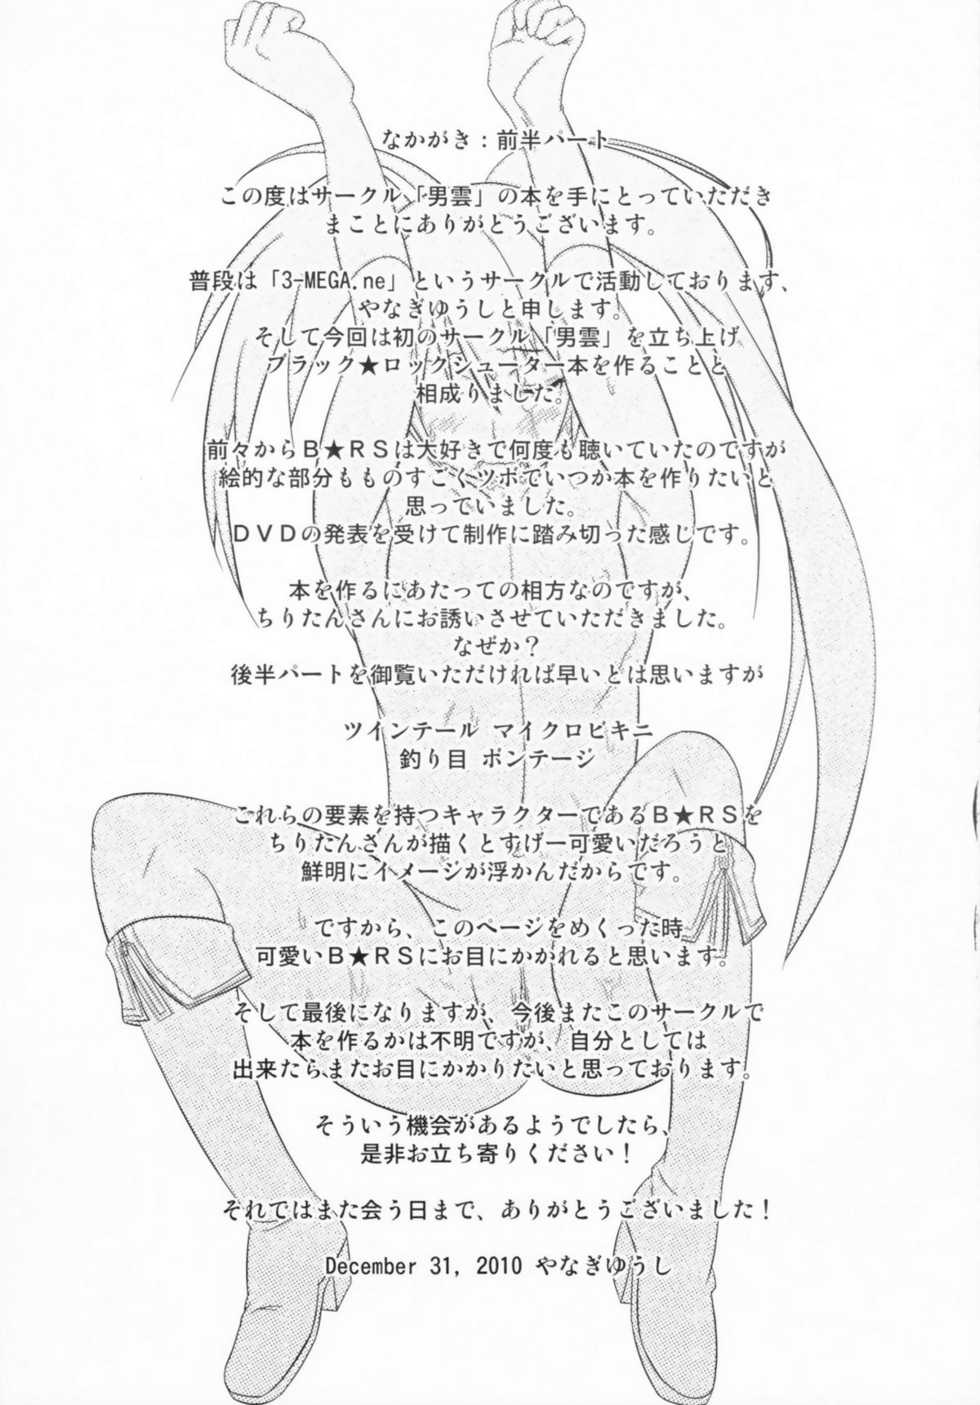 なかがき：前半パート
この度はサークル「男雲」の本を手にとっていただき
まことにありがとうございます。
普段は「3-MEGA.ne」というサークルで活動しております、
やなぎゆうしと申します。
そして今回は初のサークル「男雲」を立ち上げ
ブラック★ロックシューター本を作ることと
相成りました。
前々からＢ★ＲＳは大好きで何度も聴いていたのですが
絵的な部分もものすごくツボでいつか本を作りたいと
思っていました。
ＤＶＤの発表を受けて制作に踏み切った感じです。
本を作るにあたっての相方なのですが、
ちりたんさんにお誘いさせていただきました。
なぜか？
後半パートを御覧いただければ早いとは思いますが
ツインテール マイクロビキニ
釣り目 ボンテージ
これらの要素を持つキャラクターであるＢ★ＲＳを
ちりたんさんが描くとすげー可愛いだろうと
鮮明にイメージが浮かんだからです。
ですから、このページをめくった時
可愛いＢ★ＲＳにお目にかかれると思います。
そして最後になりますが、今後またこのサークルで
本を作るかは不明ですが、自分としては
出来たらまたお目にかかりたいと思っております。
そういう機会があるようでしたら、
是非お立ち寄りください！
それではまた会う日まで、ありがとうございました！
December 31, 2010 やなぎゆうし